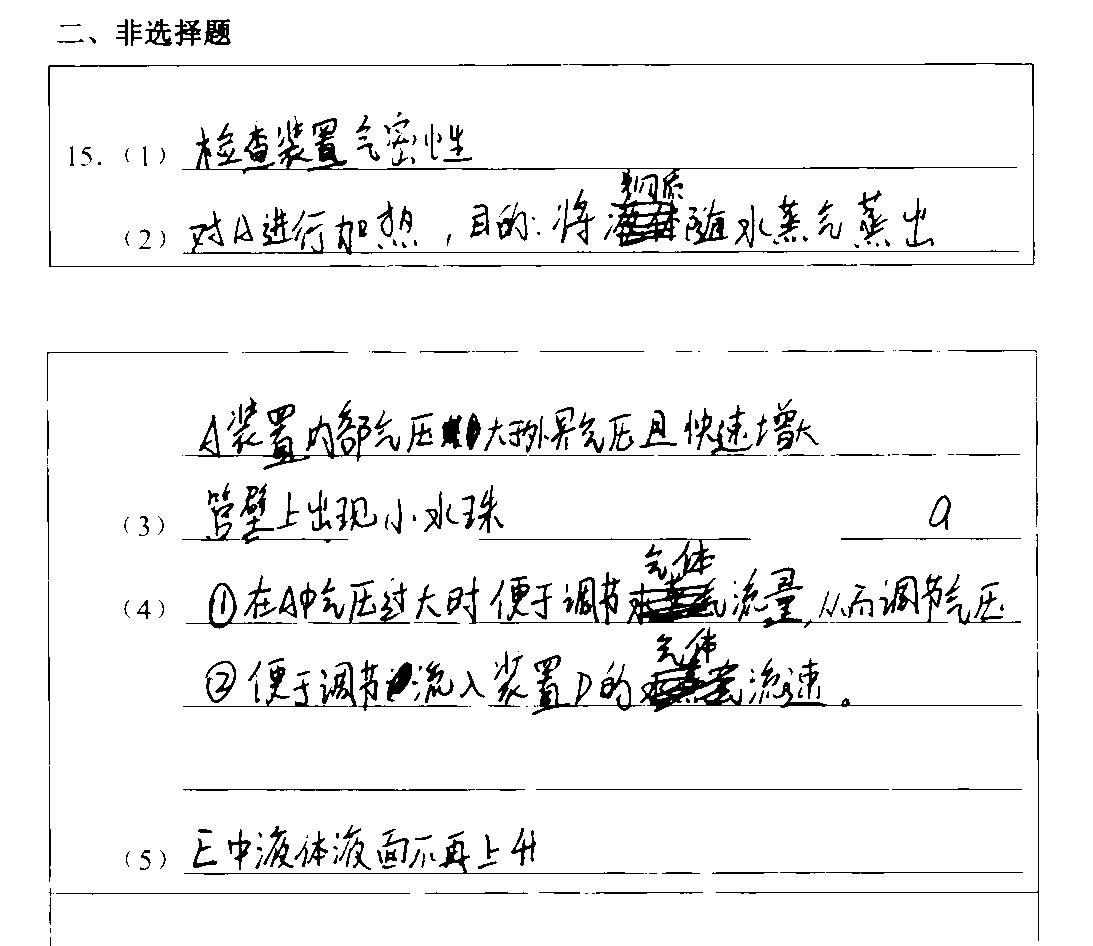 二、非选择题
15.（1）检查装置气密性
（2）对A进行加热，目的：将物质随水蒸气蒸出
A装置内部气压大于外界气压且快速增大
（3）管壁上出现小水珠 a
（4）①在A中气压过大时便于调节气体流量,从而调节气压
②便于调节流入装置D的气体流速。
（5）E中液体液面不再上升